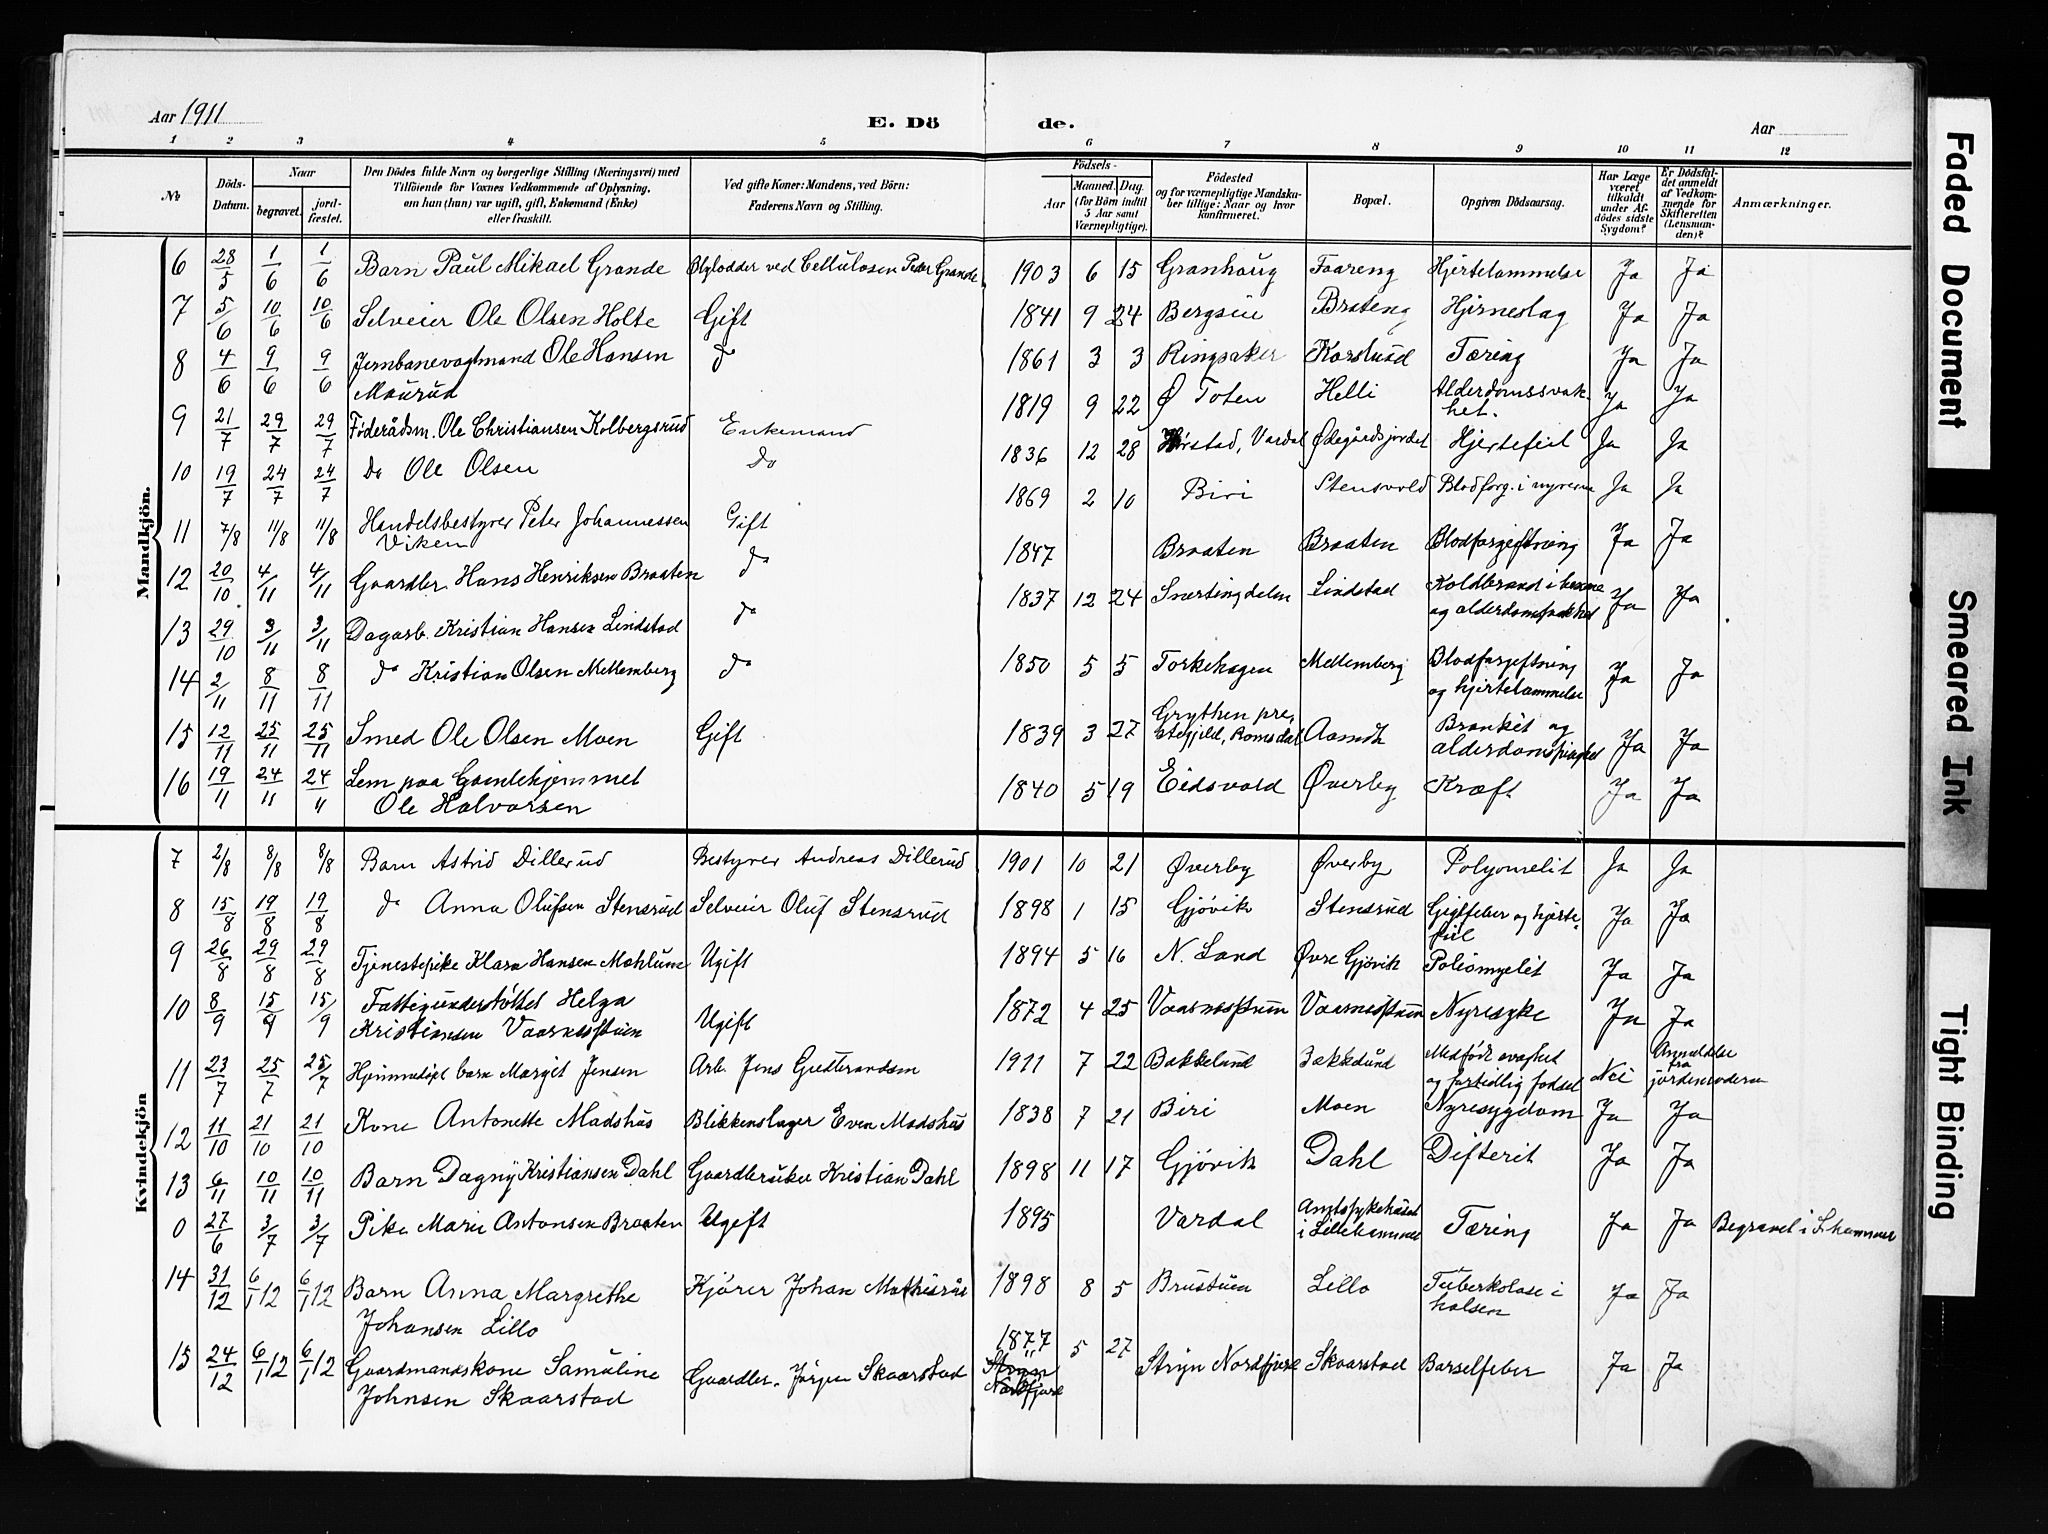 Aar 1911
E. Dö de.
Aar
1 2 3 4 5 6 7 8 9 10 11 12
No
Döds-Datum.
Naar
begravet.
jord-fæstet.
Den Dödes fulde Navn og borgerlige Stilling (Næringsvei) med
Tilföiende for Voxnes Vedkommende af Oplysning,
om han (hun) var ugift, gift, Enkemand (Enke)
eller fraskilt.
Ved gifte Koner: Mandens, ved Börn:
Faderens Navn og Stilling.
Födsels-
Aar
Maaned.
Dag.
(for Börn indtil
5 Aar samt
Værnepligtige).
Födested
og for værnepligtige Mandska-
ber tillige: Naar og hvor
konfirmeret.
Bopæl.
Opgiven Dödsaarsag.
Har Læge
været
tilkaldt
under Af-
dödes sidste
Sygdom?
Er Dödsfal-
det anmeldt
af Vedkom-
mende for
Skifteretten
(Lensman-
den)?
Anmærkninger.
Mandkjön.
6 28/5 1/6 1/6 Barn Paul Mikael Grande Ølglodder ved Cellulosen Peder Grande 1903 6 15 Granhaug Faareng Hjertelammelse Ja Ja
7 5/6 10/6 10/6 Selveier Ole Olsen Holte Gift 1841 9 24 Bergsiu Brateng Hjerneslag Ja Ja
8 4/6 9/6 9/6 Jernbanevagtmand Ole Hansen do 1861 3 3 Ringsaker Karslund Tæring Ja Ja
Maurud
9 21/7 29/7 29/7 Föderådsm. Ole Christiansen Kolbergsrud Enkemand 1819 9 22 Ø Toten Helli Alderdomssvak-
het. Ja Ja
10 19/7 24/7 24/7 Do Ole Olsen Do 1836 12 28 Hørstad, Vardal Ødegårdsjordet Hjertefeil Ja Ja
11 7/8 11/8 11/8 Handelsbestyrer Peter Johannessen Gift 1869 2 10 Biri Stensvold Blodforg. i nyrerne Ja Ja
Viken
12 20/10 4/11 4/11 Gaardbr. Hans Henriksen Braaten do 1847 Braaten Braaten Blodforgiftning Ja Ja
13 29/10 3/11 3/11 Dagarb. Kristian Hansen Lindstad do 1837 12 24 Snertingdalen Lindstad Koldbrand i benene
og alderdomssvakhet Ja Ja
14 2/11 8/11 8/11 do Kristian Olsen Mellemberg do 1850 5 5 Torkehagen Mellemberg Blodforgiftning
og hjertelammelse Ja Ja
15 12/11 25/11 25/11 Smed Ole Olsen Moen Gift 1839 3 27 Grythen pre-
stegjeld, Romsdal Aamdt Bronkit og
alderdomssvakhet Ja Ja
16 19/11 24/11 24/11 Lem paa Gamlehjemmet 1840 5 19 Eidsvold Øverby Kræft Ja Ja
Ole Halvorsen
Kvindekjön
7 2/8 8/8 8/8 Barn Astrid Dillerud Bestyrer Andreas Dillerud 1901 10 21 Øverby Øverby Polyomelit Ja Ja
8 15/8 19/8 19/8 do Anna Olufsen Stensrud Selveier Oluf Stensrud 1898 1 15 Gjövik Stensrud Gigtfeber og hjerte-
feil Ja Ja
9 26/8 29/8 29/8 Tjenestepike Klara Hansen Mæhlum Ugift 1894 5 16 N. Land Øvre Gjövik Poliomyelit Ja Ja
10 8/9 15/9 15/9 Fattigunderstöttet Helga
Kristiansen Vaarnesstuen Ugift 1872 4 25 Vaarnesstuen Vaarnesstuen Nyresyke Ja Ja
11 23/7 25/7 25/7 Hjemmedøpt barn Margit Jensen Arb. Jens Gudbrandsen 1911 7 22 Bakkelund Bakkelund Medfödt svaghed
og fortidlig födsel Nei Anmeldelse
fra
jordemoderen
12 11/10 21/10 21/10 Kone Antonette Madshus Blikkenslager Even Madshus 1838 7 21 Biri Moen Nyresygdom Ja Ja
13 6/11 10/11 10/11 Barn Dagny Kristiansen Dahl Gaardbruker Kristian Dahl 1898 11 17 Gjövik Dahl Difterit Ja Ja
0 27/6 3/7 3/7 Pike Marie Antonsen Braaten Ugift 1895 Vardal Amtssykehuset
i Lillehammer Tæring Ja Ja Begravet i L.hammer
14 31/12 6/1 12 6/1 12 Barn Anna Margrethe Kjörer Johan Mathisrus 1898 8 5 Brustuen Lillo Tuberkolose i
halsen Ja Ja
Johansen Lillo
15 24/12 6/1 12 6/1 12 Gaardmandskone Samuline Gaardbr. Jörgen Skaarstad 1877 5 27 Stryn Nordfjord Skaarstad Barselfeber Ja Ja
Johnsen Skaarstad
Stryn
Nordfjord
Faded Document
Smeared Ink
Tight Binding